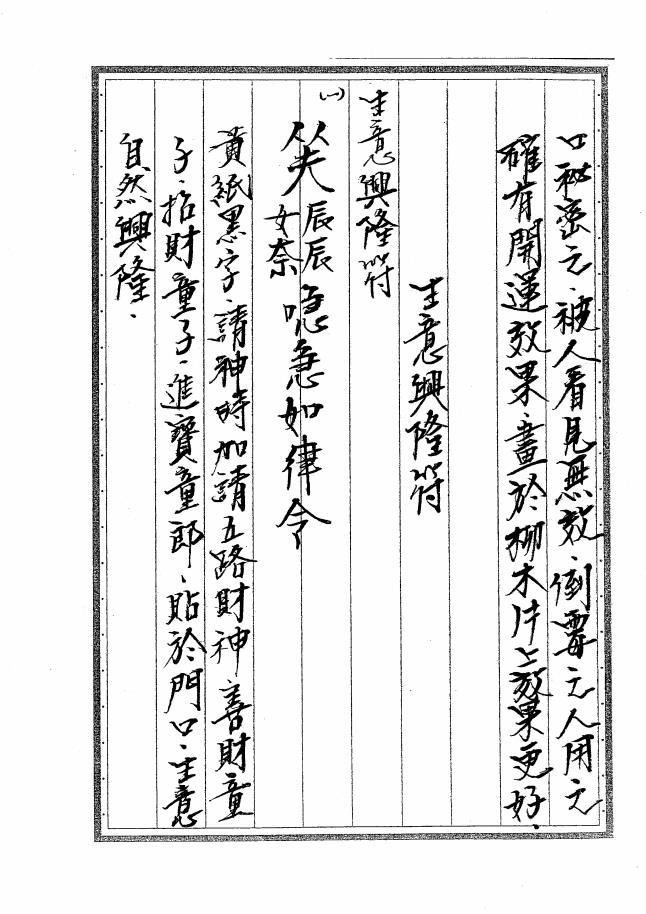 口祕密之、被人看見無效、倒霉之人用之
確有開運效果、畫於柳木片上效果更好、
生意興隆符
生意興隆符
(一)
辰辰 唸急如律令
女奈
黃紙黑字、請神時加請五路財神、善財童
子、招財童子、進寶童郎、貼於門口、生意
自然興隆、